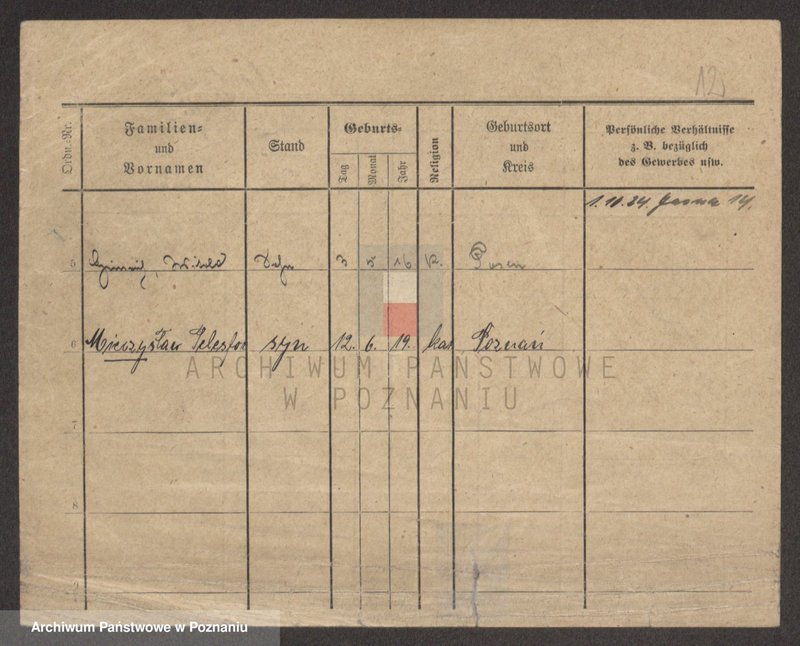 12
Ordn.-Nr.
Familien=
und
Vornamen
Stand
Geburts=
Tag
Monat
Jahr
Religion
Geburtsort
und
Kreis
Persönliche Verhältnisse
z. B. bezüglich
des Gewerbes usw.
1.10.34. 14.
5 3 5 16 k. Posen
6 Mieczysław syn 12. 6. 19. kat Poznań
ARCHIWUM PAŃSTWOWE
W POZNANIU
7
8
Archiwum Państwowe w Poznaniu